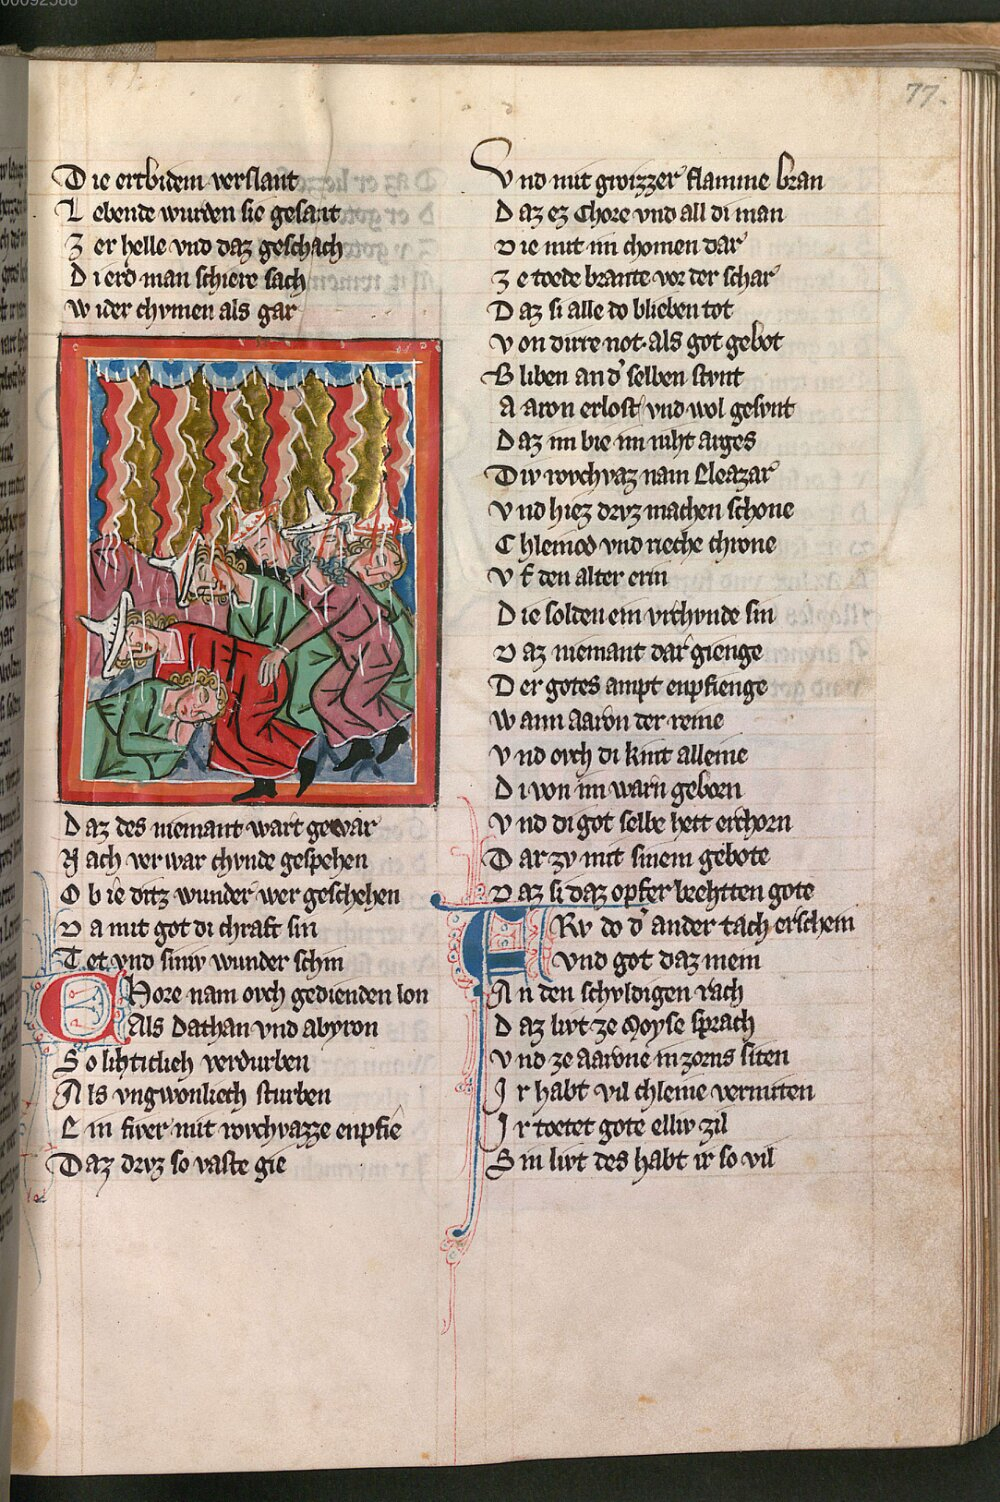 00092588
77.
Die ertbidem verslant
Lebende wurden sie gesant
Zer helle vnd daz geschach
Di erd man schiere sach
Wider chvmen als gar
Daz des niemant wart gewar
Nach ver war chvnde gespehen
Ob ie ditz wunder wer geschehen
Da mit got di chraft sin
Tet vnd siniv wunder schin
Chore nam ovch gedienden lon
Als Dathan vnd abyron
So lihticlich verdurben
Als vngwonlich sturben
Ein fiver mit rovchvazze enpfie
Daz drvz so vaste gie
Vnd mit grozzer flamme bran
Daz ez Chore vnd all di man
Die mit im chomen dar
Ze tode brante vor der schar
Daz si alle do bliben tot
Von dirre not als got gebot
Bliben an d selben stvnt
Aaron erlost vnd wol gesvnt
Daz im bie im niht arges
Div rovchvaz nam Eleazar
Vnd hiez drvz machen schone
Chleinod vnd rieche chrone
Vf den alter erin
Die solden ein vrchvnde sin
Daz niemant dar gienge
Der gotes ampt enpfienge
Wann Aaron der reine
Vnd ovch di kint alleine
Di von im warn geborn
Vnd di got selbe hett erchorn
Dar zv mit sinem gebote
Daz si daz opfer brehtten gote
Rv do d ander tach erschein
Vnd got daz mein
An den schvldigen rach
Daz livt ze Moyse sprach
Vnd ze aarone in zorns siten
Ir habt vil chleine vermiten
Ir toetet gote elliv zil
Sin livt des habt ir so vil